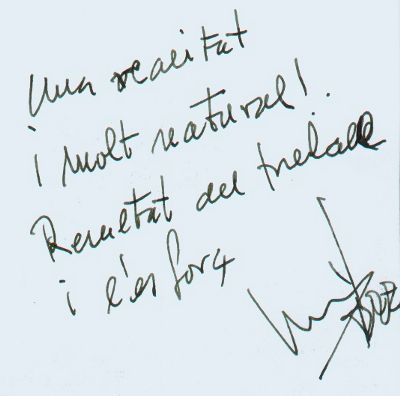 Una realitat
i molt natural!
Resultat del treball
i l'esforç